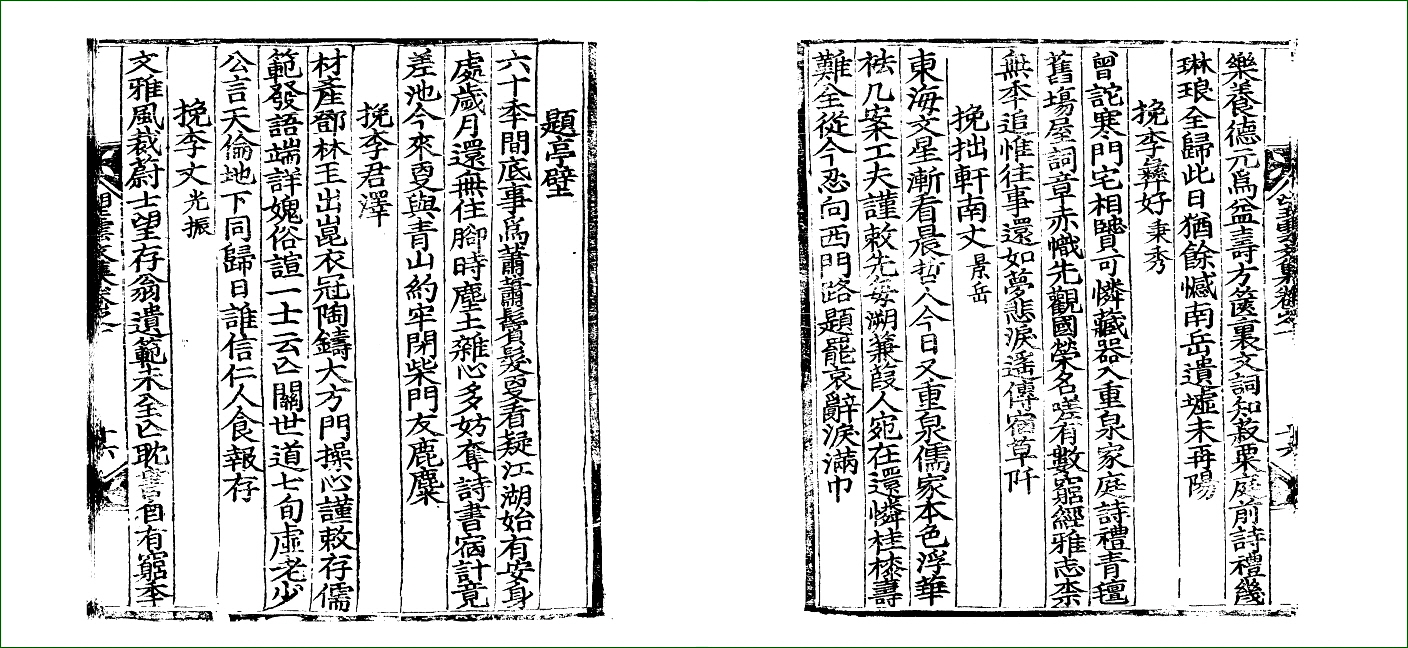 樂養德元爲益壽方篋裏文詞知菽粟庭前詩禮幾
琳琅全歸此日猶餘憾南岳遺墟未再陽
挽李彝好秉秀
曾詑寒門宅相賢可憐藏器入重泉家庭詩禮青氈
舊塲屋詞章赤幟先觀國榮名嗟有數窮經雅志柰
無秊追惟往事還如夢悲淚遥傳宿草阡
挽拙軒南丈景岳
東海文星漸看晨哲人今日又重泉儒家本色浮華
袪几案工夫謹敕先每溯蒹葭人宛在還憐桂椽壽
難全從今忍向西門路題罷哀辭淚滿巾
題亭壁
六十秊間底事爲蕭蕭鬢髮更看疑江湖始有安身
處歲月還無住腳時塵土雜心多妨奪詩書宿計竟
差池今來更與青山約牢閉柴門友鹿麋
挽李君澤
材產鄧林玉出崑衣冠陶鑄大方門操心謹敕存儒
範發語端詳媿俗諠一士云亡關世道七旬虛老少
公言天倫地下同歸日誰信仁人食報存
挽李丈光振
文雅風裁蔚士望存翁遺範未全亡耽書自有窮秊